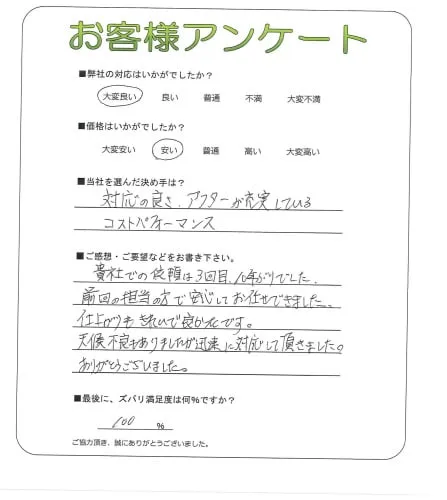 お客様アンケート
■弊社の対応はいかがでしたか?
大変良い 良い 普通 不満 大変不満
■価格はいかがでしたか?
大変安い 安い 普通 高い 大変高い
■当社を選んだ決め手は?
対応の良さ、アフターが充実している
コストパフォーマンス
■ご感想・ご要望などをお書き下さい。
貴社での依頼は3回目、10年ぶりでした、
前回の担当の方で安心してお任せできました、
仕上がりもきれいで良かったです。
天候不良もありましたが迅速に対応して頂きました。
ありがとうございました。
■最後に、ズバリ満足度は何%ですか?
100 %
ご協力頂き、誠にありがとうございました。